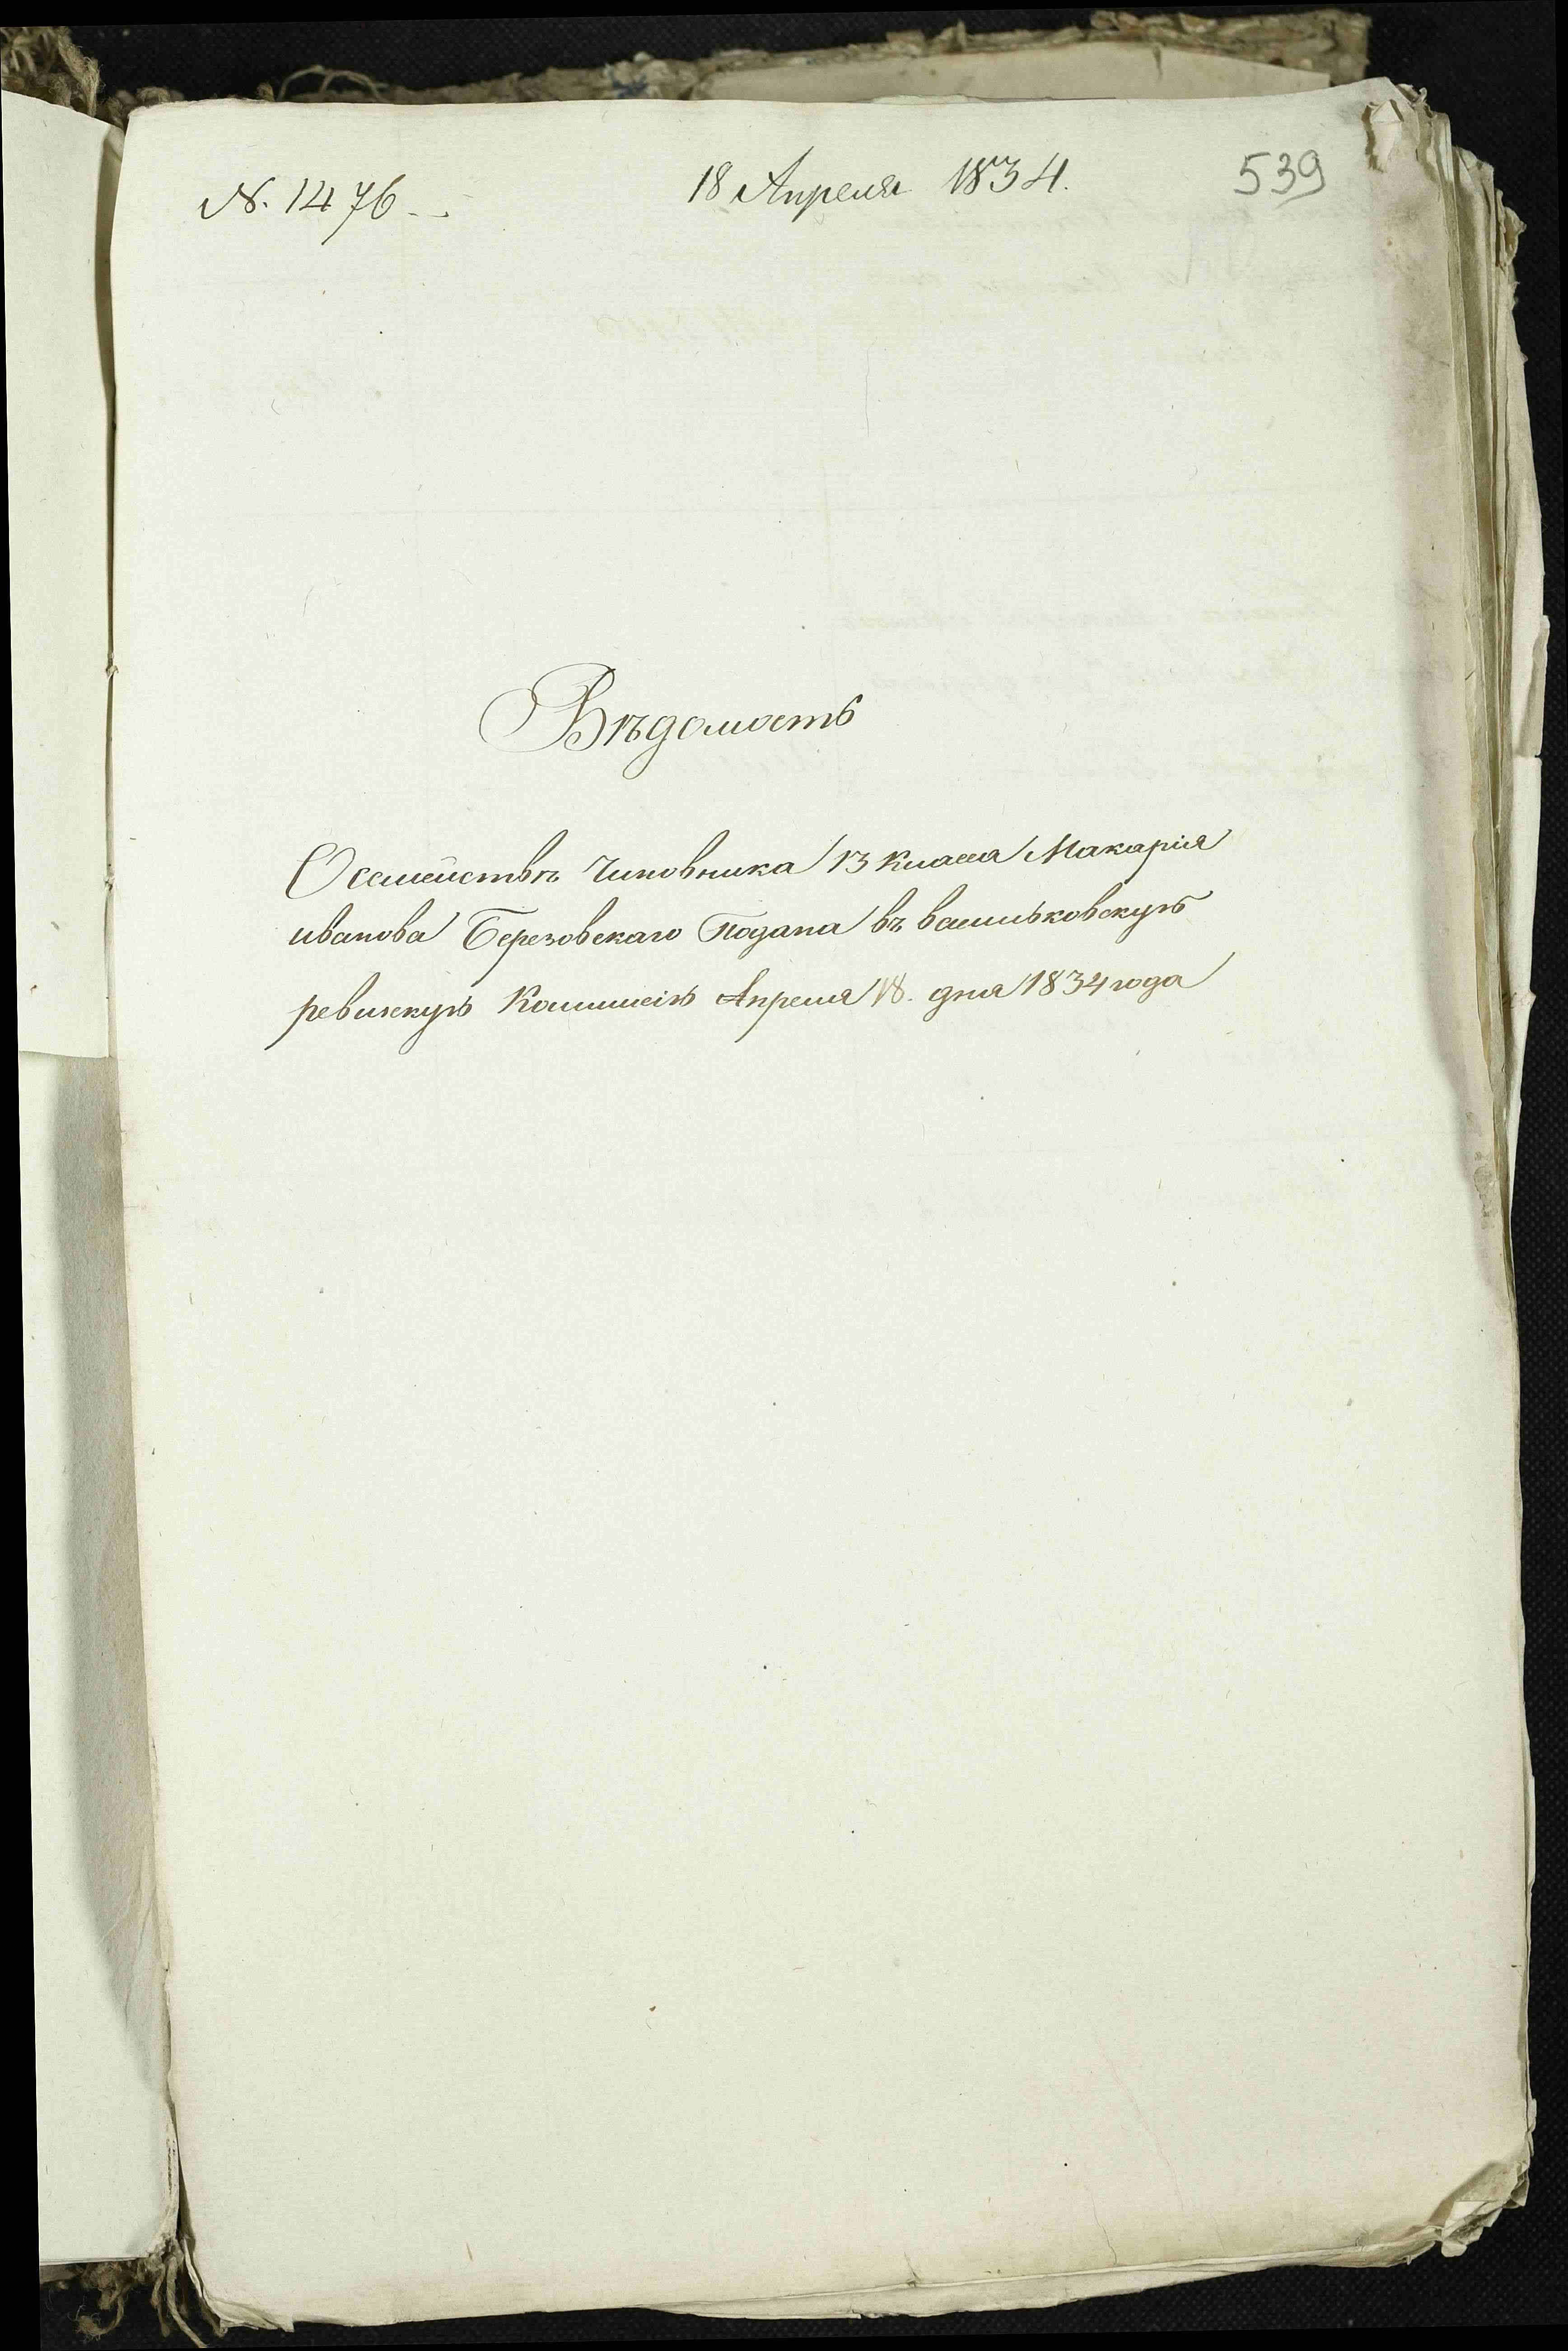 № 1476
18 Апреля 1834.
539
Вѣдомость
О семействѣ Чиновника 13 класса Макарія
иванова Березовскаго Подана въ васильковскую
ревизкую Коммисію Апреля 18. дня 1834 года